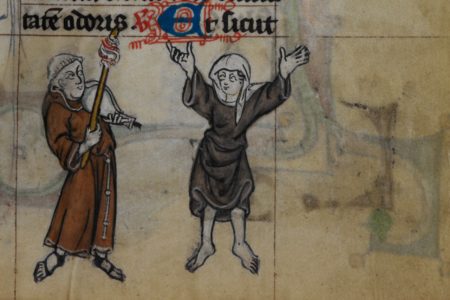 tate odoris. Et sicut